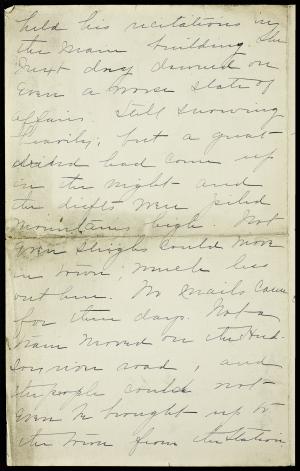 held his recitations in
the main building. The
next day dawned on
even a worse state of
affairs. Still snowing
heavily, but a great
wind had come up
in the night and
the drifts were piled
mountains high. Not
even sleighs could move
in town; much less
out here. No mails came
for three days. Not a
train moved on the Hud-
son river road, and
the people could not
even be brought up to
the town from the station